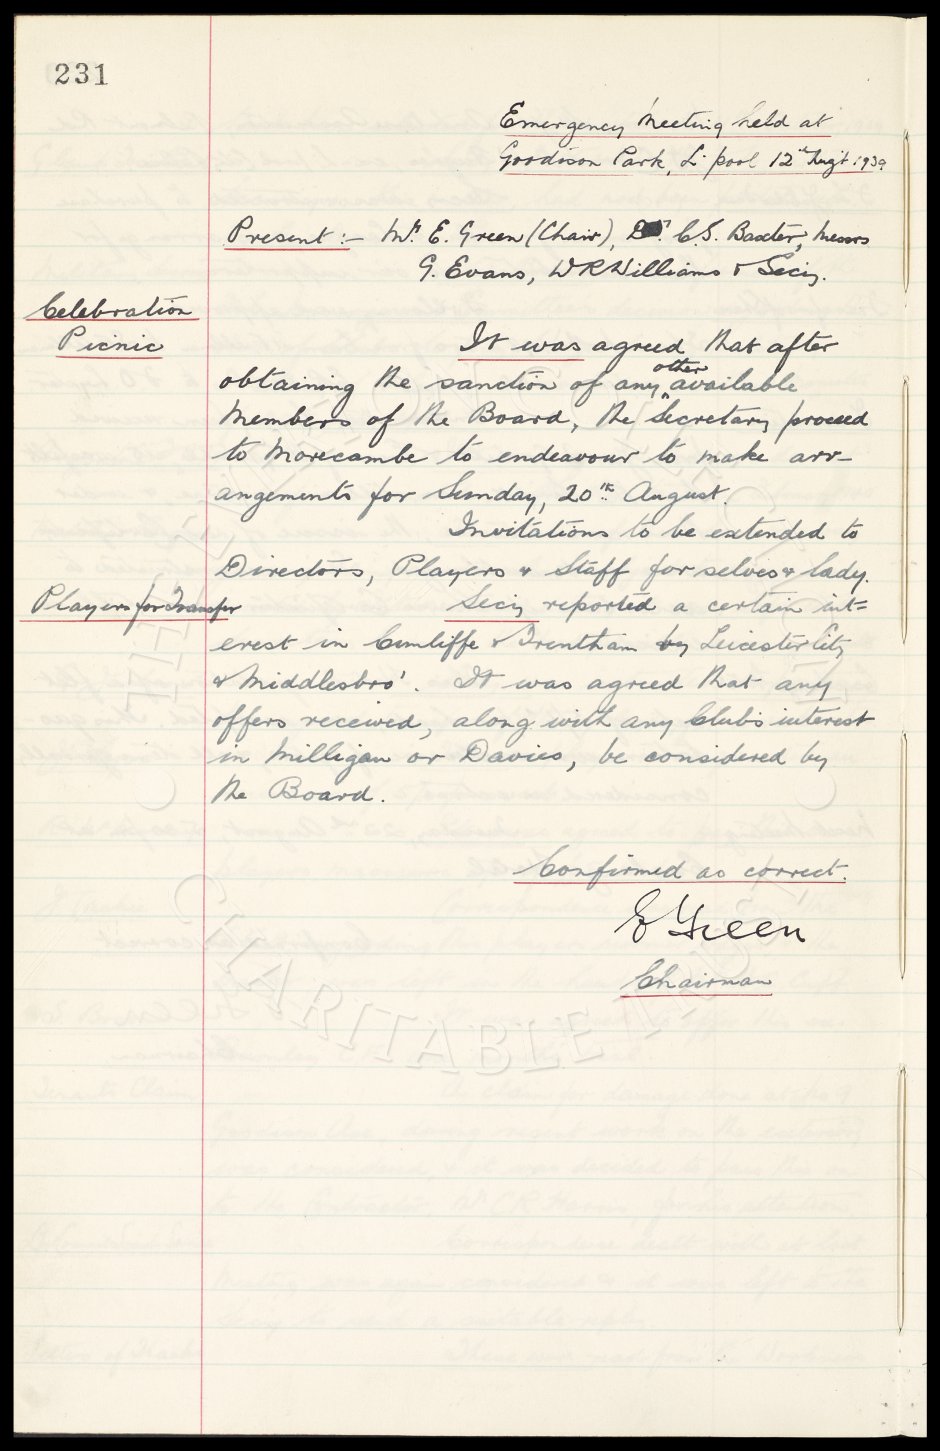 231
Emergency Meeting held at
Goodison Park, L'pool 12th Aug't 1939
Present :- Mr. E. Green (Chair), Dr. C.S. Baxter, Messrs
G. Evans, W R Williams & Secy.
Celebration
Picnic
It was agreed that after
obtaining the sanction of any other available
Members of the Board, the Secretary proceed
to Morecambe to endeavour to make arr-
angements for Sunday, 20th August.
Invitations to be extended to
Directors, Players & Staff for selves & lady.
Players for Transfer
Secy reported a certain int-
erest in Cunliffe & Trentham by Leicester City
& Middlesbro'. It was agreed that any
offers received, along with any Club's interest
in Milligan or Davies, be considered by
the Board.
Confirmed as correct.
E Green
Chairman
CHARITABLE TRUST